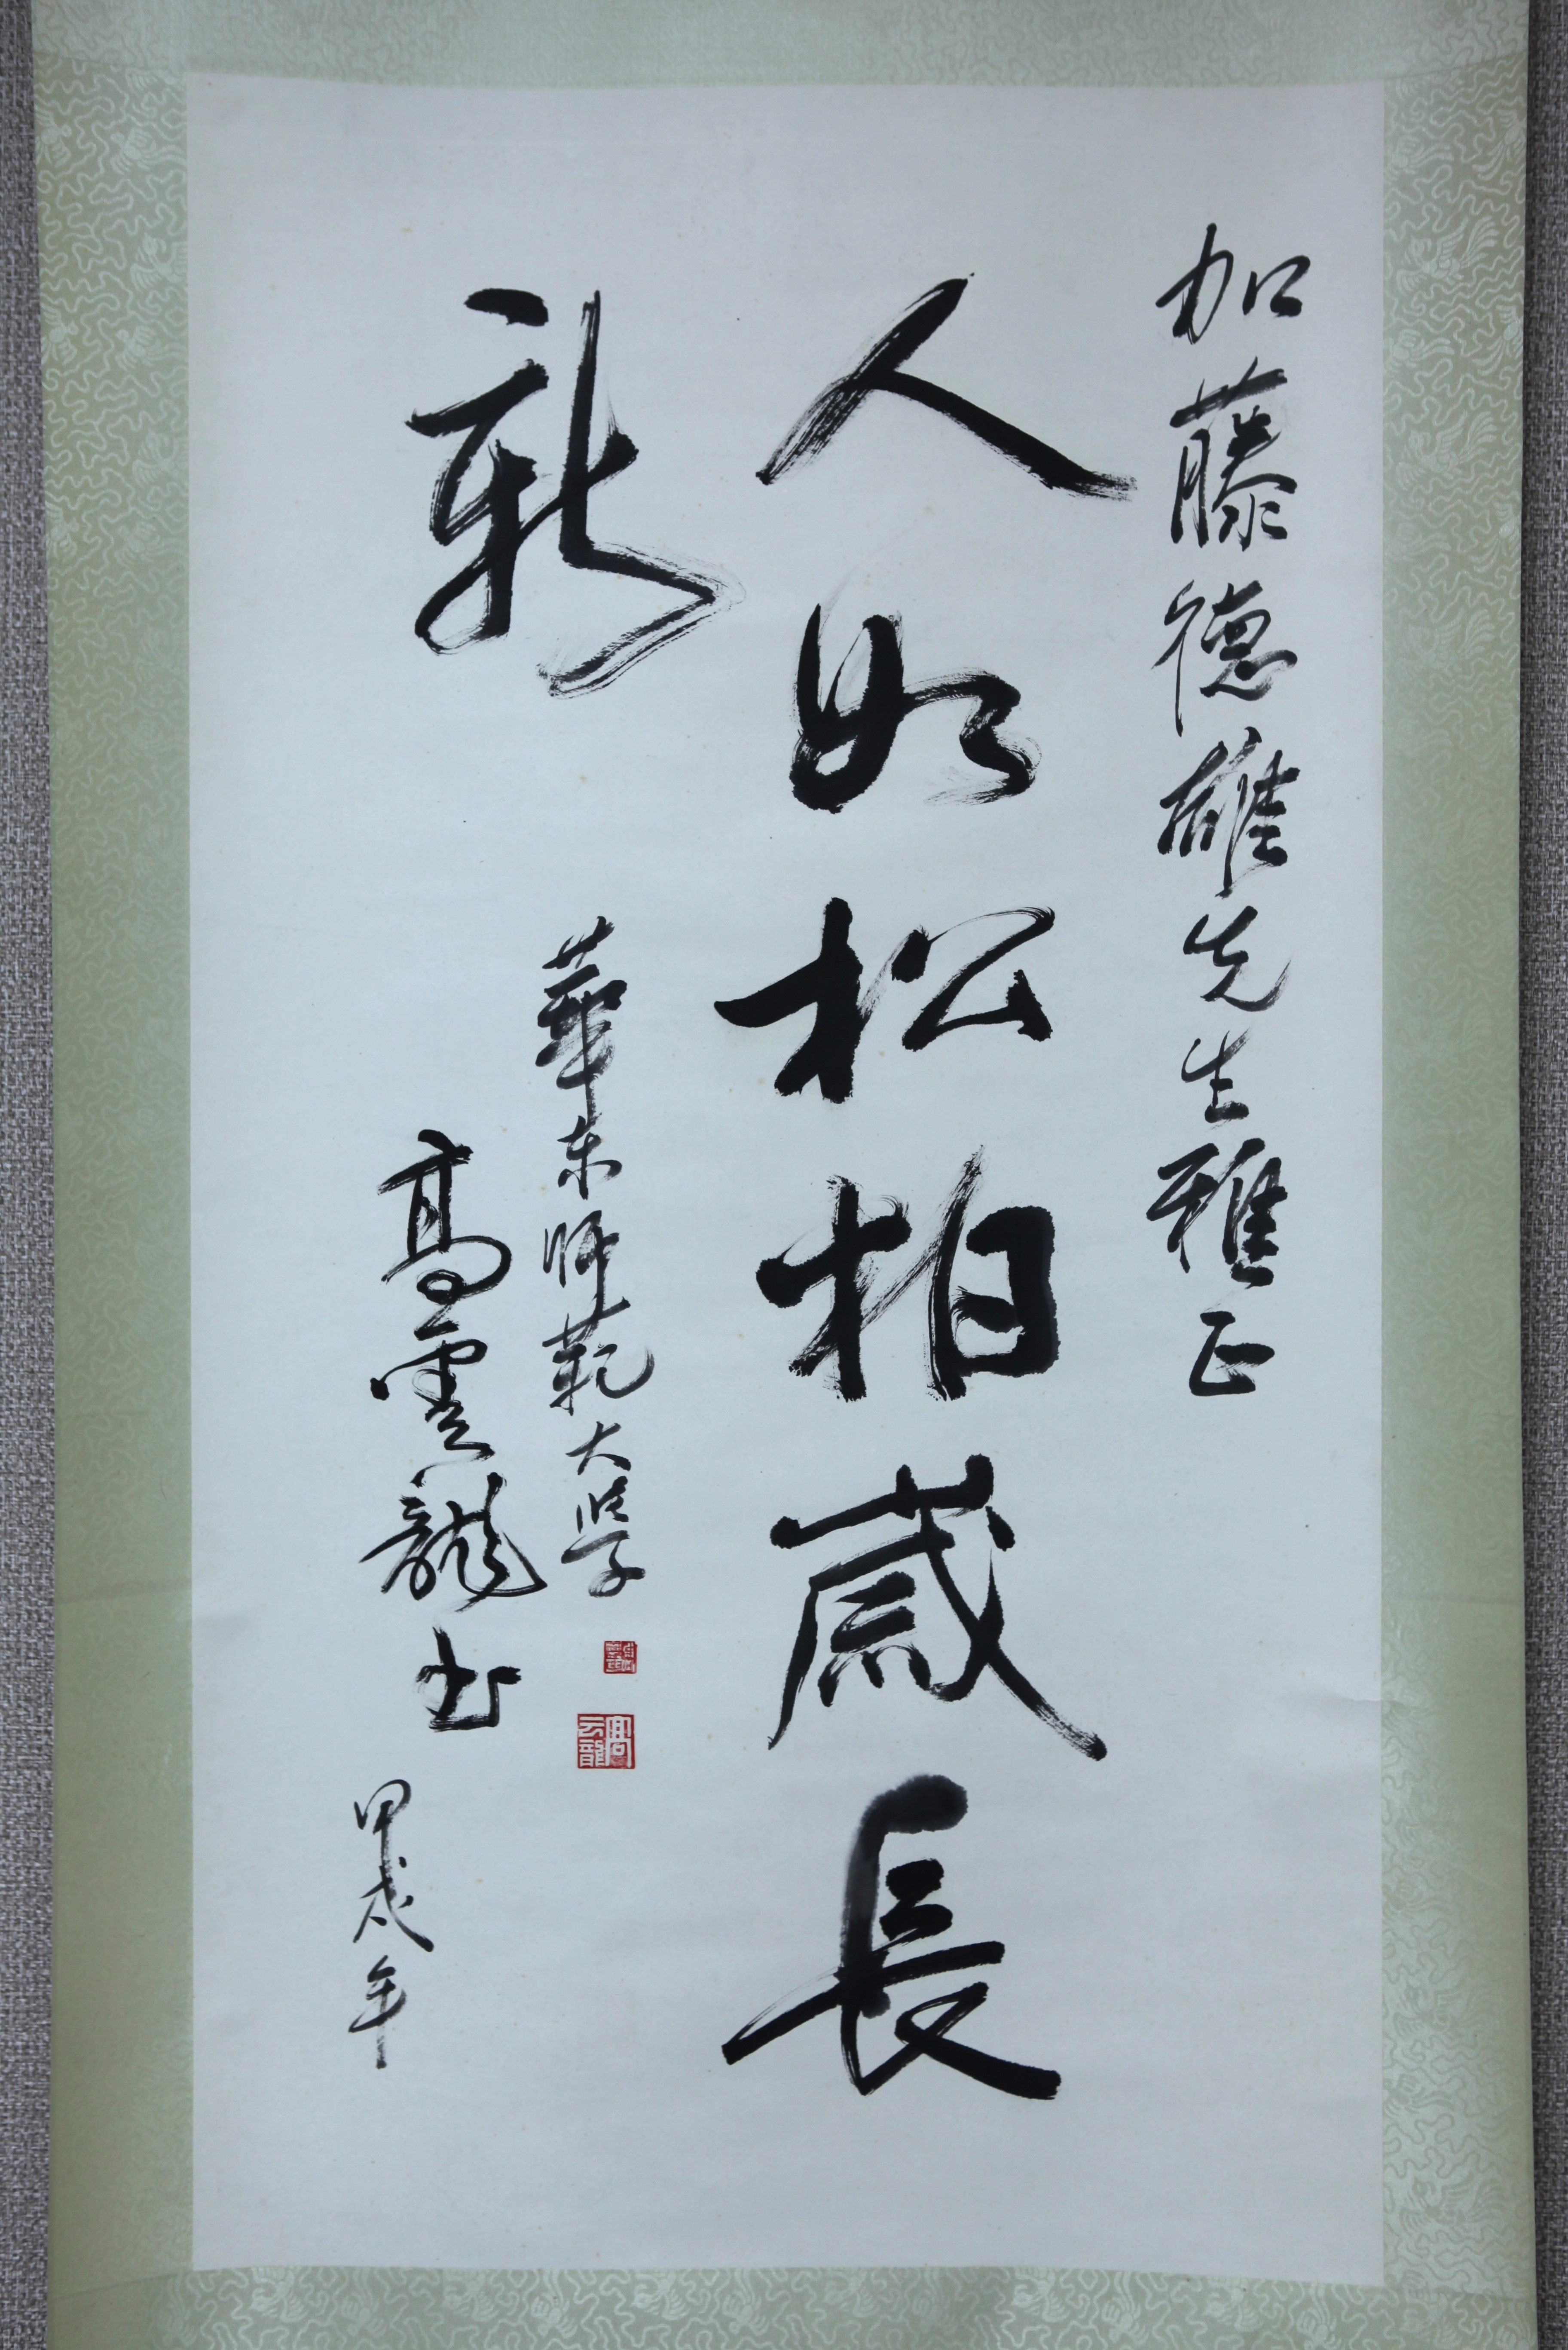 加藤德雄先生雅正
人如松柏歲長
新
華东师範大学
高雲龍书
甲戌年
高云龍